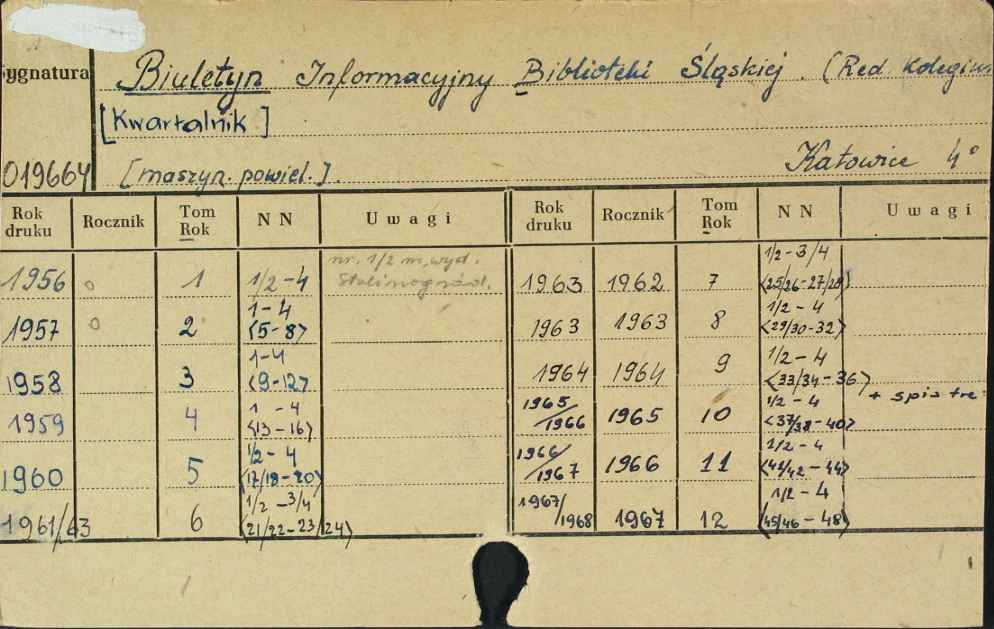 ygnatura
Biuletyn Informacyjny Biblioteki Śląskiej. (Red. Kolegium
[Kwartalnik]
019664 [maszyn. powiel.]. Katowice 4°
Rok druku Rocznik Tom Rok NN Uwagi Rok druku Rocznik Tom Rok NN Uwagi
1956 1 1/2-4 nr. 1/2 m. wyd. Stalinogród. 1963 1962 7 1/2-3/4 <25/26-27/28>
1957 2 1-4 <5-8> 1963 1963 8 1/2-4 <29/30-32>
1958 3 1-4 <9-12> 1964 1964 9 1/2-4 <33/34-36>
1959 4 1-4 <13-16> 1965/1966 1965 10 1/2-4 <37/38-40> + spis tre
1960 5 1/2-4 <17/18-20> 1966/1967 1966 11 1/2-4 <41/42-44>
1961/63 6 1/2-3/4 <21/22-23/24> 1967/1968 1967 12 1/2-4 <45/46-48>